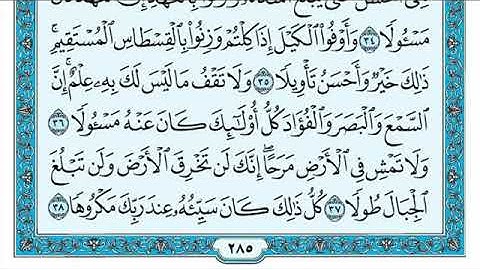 مَسْـُٔولًا ٣٤ وَأَوْفُوا۟ ٱلْكَيْلَ إِذَا كِلْتُمْ وَزِنُوا۟ بِٱلْقِسْطَاسِ ٱلْمُسْتَقِيمِ ۚ
ذَٰلِكَ خَيْرٌ وَأَحْسَنُ تَأْوِيلًا ٣٥ وَلَا تَقْفُ مَا لَيْسَ لَكَ بِهِۦ عِلْمٌ ۚ إِنَّ
ٱلسَّمْعَ وَٱلْبَصَرَ وَٱلْفُؤَادَ كُلُّ أُو۟لَـٰٓئِكَ كَانَ عَنْهُ مَسْـُٔولًا ٣٦
وَلَا تَمْشِ فِى ٱلْأَرْضِ مَرَحًا ۖ إِنَّكَ لَن تَخْرِقَ ٱلْأَرْضَ وَلَن تَبْلُغَ
ٱلْجِبَالَ طُولًا ٣٧ كُلُّ ذَٰلِكَ كَانَ سَيِّئُهُۥ عِندَ رَبِّكَ مَكْرُوهًا ٣٨
٢٨٥